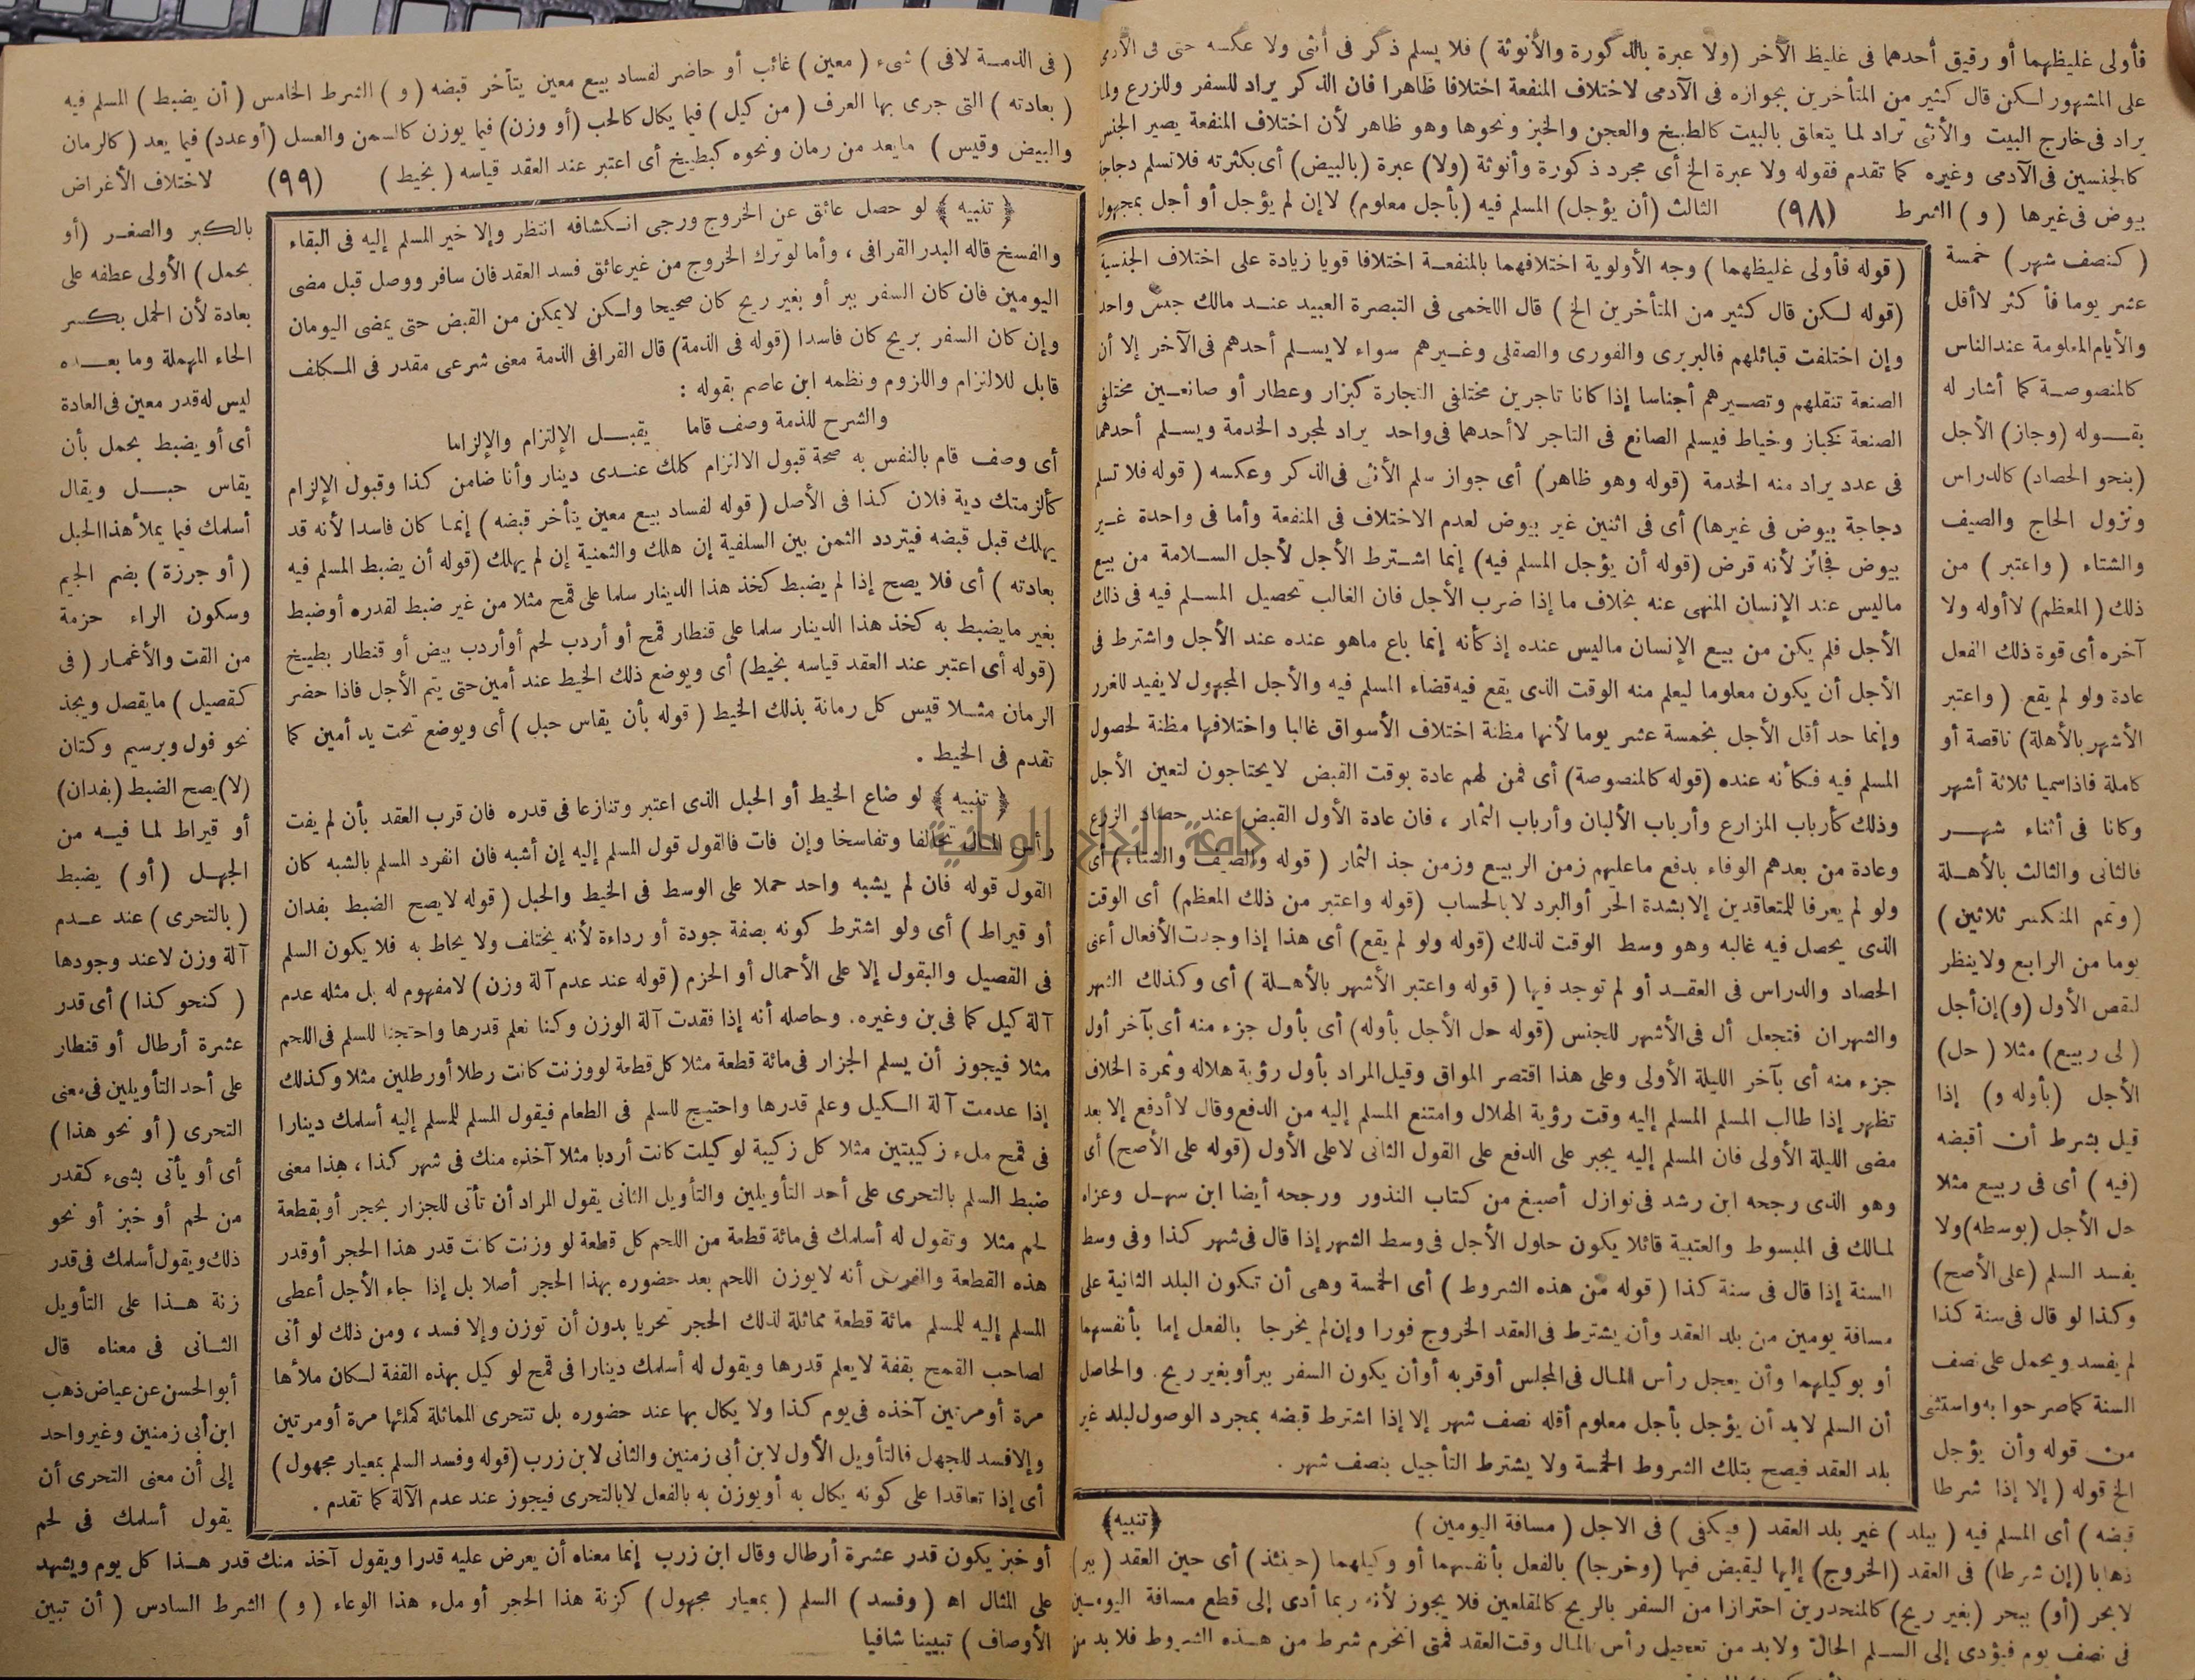 فأولى غليظهما أو رقيق أحدهما فى غليظ الآخر (ولا عبرة بالذكورة والأنوثة) فلا يسلم ذكر فى أنثى ولا عكسه حتى فى الآدمى
على المشهور لكن قال كثير من المتأخرين بجوازه فى الآدمى لاختلاف المنفعة اختلافا ظاهرا فان الذكر يراد للسفر وللزرع ولما
يراد فى خارج البيت والأنثى تراد لما يتعلق بالبيت كالطبخ والعجن والخبز ونحوها وهو ظاهر لأن اختلاف المنفعة يصير الجنس
كالجنسين فى الآدمى وغيره كما تقدم فقوله ولا عبرة الخ أى مجرد ذكورة وأنوثة (ولا) عبرة (بالبيض) أى بكثرته فلا تسلم دجاجة
بيوض فى غيرها (و) الشرط (٩٨) الثالث (أن يؤجل) المسلم فيه (بأجل معلوم) لا إن لم يؤجل أو أجل بمجهول
(كنصف شهر) خمسة
عشر يوما فأكثر لا أقل
والأيام المعلومة عند الناس
كالمنصوصة كما أشار له
بقوله (وجاز) الأجل
(بنحو الحصاد) كالدراس
ونزول الحاج والصيف
والشتاء (واعتبر) من
ذلك (المعظم) لا أوله ولا
آخره أى قوة ذلك الفعل
عادة ولو لم يقع (واعتبر
الأشهر بالأهلة) ناقصة أو
كاملة فاذا سميا ثلاثة أشهر
وكانا فى أثناء شهر
فالثانى والثالث بالأهلة
(وتمم المنكسر ثلاثين)
يوما من الرابع ولا ينظر
لنقص الأول (و) إن أجل
(لى ربيع) مثلا (حل)
الأجل (بأوله و) إذا
قيل بشرط أن أقبضه
(فيه) أى فى ربيع مثلا
حل الأجل (بوسطه) ولا
يفسد السلم (على الأصح)
وكذا لو قال فى سنة كذا
لم يفسد ويحمل على نصف
السنة كما صرحوا به واستثنى
من قوله وأن يؤجل
الخ قوله (إلا إذا شرطا
(قوله فأولى غليظهما) وجه الأولوية اختلافهما بالمنفعة اختلافا قويا زيادة على اختلاف الجنسية
(قوله لكن قال كثير من المتأخرين الخ) قال اللخمى فى التبصرة العبيد عند مالك جنس واحد
وإن اختلفت قبائلهم فالبربرى والفورى والصقلى وغيرهم سواء لا يسلم أحدهم فى الآخر إلا أن
الصنعة تنقلهم وتصيرهم أجناسا إذا كانا تاجرين مختلفى التجارة كبزار وعطار أو صانعين مختلفى
الصنعة كخباز وخياط فيسلم الصانع فى التاجر لا أحدهما فى واحد يراد لمجرد الخدمة ويسلم أحدهما
فى عدد يراد منه الخدمة (قوله وهو ظاهر) أى جواز سلم الأنثى فى الذكر وعكسه (قوله فلا تسلم
دجاجة بيوض فى غيرها) أى فى اثنين غير بيوض لعدم الاختلاف فى المنفعة وأما فى واحدة غير
بيوض فجائز لأنه قرض (قوله أن يؤجل المسلم فيه) إنما اشترط الأجل لأجل السلامة من بيع
ما ليس عند الإنسان المنهى عنه بخلاف ما إذا ضرب الأجل فان الغالب تحصيل المسلم فيه فى ذلك
الأجل فلم يكن من بيع الإنسان ما ليس عنده إذ كأنه إنما باع ما هو عنده عند الأجل واشترط فى
الأجل أن يكون معلوما ليعلم منه الوقت الذى يقع فيه قضاء المسلم فيه والأجل المجهول لا يفيد للغرر
وإنما حد أقل الأجل بخمسة عشر يوما لأنها مظنة اختلاف الأسواق غالبا واختلافها مظنة لحصول
المسلم فيه فكأنه عنده (قوله كالمنصوصة) أى فمن لهم عادة بوقت القبض لا يحتاجون لتعين الأجل
وذلك كأرباب المزارع وأرباب الألبان وأرباب الثمار ، فان عادة الأول القبض عند حصاد الزرع
وعادة من بعدهم الوفاء بدفع ما عليهم زمن الربيع وزمن جذ الثمار (قوله والصيف والشتاء) أى
ولو لم يعرفا للمتعاقدين إلا بشدة الحر أو البرد لا بالحساب (قوله واعتبر من ذلك المعظم) أى الوقت
الذى يحصل فيه غالبه وهو وسط الوقت لذلك (قوله ولو لم يقع) أى هذا إذا وجدت الأفعال أعنى
الحصاد والدراس فى العقد أو لم توجد فيها (قوله واعتبر الأشهر بالأهلة) أى وكذلك الشهر
والشهران فتجعل أل فى الأشهر للجنس (قوله حل الأجل بأوله) أى بأول جزء منه أى بآخر أول
جزء منه أى بآخر الليلة الأولى وعلى هذا اقتصر المواق وقيل المراد بأول رؤية هلاله وثمرة الخلاف
تظهر إذا طالب المسلم المسلم إليه وقت رؤية الهلال وامتنع المسلم إليه من الدفع وقال لا أدفع إلا بعد
مضى الليلة الأولى فان المسلم إليه يجبر على الدفع على القول الثانى لا على الأول (قوله على الأصح) أى
وهو الذى رجحه ابن رشد فى نوازل أصبغ من كتاب النذور ورجحه أيضا ابن سهل وعزاه
لمالك فى المبسوط والعتبية قائلا يكون حلول الأجل فى وسط الشهر إذا قال فى شهر كذا وفى وسط
السنة إذا قال فى سنة كذا (قوله من هذه الشروط) أى الخمسة وهى أن تكون البلد الثانية على
مسافة يومين من بلد العقد وأن يشترط فى العقد الخروج فورا وإن لم يخرجا بالفعل إما بأنفسهما
أو بوكيلهما وأن يعجل رأس المال فى المجلس أو قربه أو أن يكون السفر ببر أو بغير ريح . والحاصل
أن السلم لابد أن يؤجل بأجل معلوم أقله نصف شهر إلا إذا اشترط قبضه بمجرد الوصول لبلد غير
بلد العقد فيصح بتلك الشروط الخمسة ولا يشترط التأجيل بنصف شهر .
﴿تنبيه﴾
قبضه) أى المسلم فيه (ببلد) غير بلد العقد (فيكفى) فى الاجل (مسافة اليومين)
ذهابا (إن شرطا) فى العقد (الخروج) إليها ليقبض فيها (وخرجا) بالفعل بأنفسهما أو وكيلهما (حينئذ) أى حين العقد (ببر)
لا بحر (أو) ببحر (بغير ريح) كالمنحدرين احترازا من السفر بالريح كالمقلعين فلا يجوز لأنه ربما أدى إلى قطع مسافة اليومين
فى نصف يوم فيؤدى إلى السلم الحال ولابد من تعجيل رأس المال وقت العقد فمتى انخرم شرط من هذه الشروط فلابد من
(فى الذمة لافى) شىء (معين) غائب أو حاضر لفساد بيع معين يتأخر قبضه (و) الشرط الخامس (أن يضبط) المسلم فيه
(بعادته) التى جرى بها العرف (من كيل) فيما يكال كالحب (أو وزن) فيما يوزن كالسمن والعسل (أو عدد) فيما يعد (كالرمان
والبيض وقيس) ما يعد من رمان ونحوه كبطيخ أى اعتبر عند العقد قياسه (بخيط) (٩٩) لاختلاف الأغراض
بالكبر والصغر (أو
بحمل) الأولى عطفه على
بعادة لأن الحمل بكسر
الحاء المهملة وما بعده
ليس له قدر معين فى العادة
أى أو يضبط بحمل بأن
يقاس حبل ويقال
أسلمك فيما يملأ هذا الحبل
(أو جرزة) بضم الجيم
وسكون الراء حزمة
من القت والأغمار (فى
كقصيل) ما يقصل ويجذ
نحو فول وبرسيم وكتان
(لا) يصح الضبط (بفدان)
أو قيراط لما فيه من
الجهل (أو) يضبط
(بالتحرى) عند عدم
آلة وزن لا عند وجودها
(كنحو كذا) أى قدر
عشرة أرطال أو قنطار
على أحد التأويلين فى معنى
التحرى (أو نحو هذا)
أى أو يأتى بشىء كقدر
من لحم أو خبز أو نحو
ذلك ويقول أسلمك فى قدر
زنة هذا على التأويل
الثانى فى معناه قال
أبو الحسن عن عياض ذهب
ابن أبى زمنين وغير واحد
إلى أن معنى التحرى أن
يقول أسلمك فى لحم
﴿تنبيه﴾ لو حصل عائق عن الخروج ورجى انكشافه انتظر وإلا خير المسلم إليه فى البقاء
والفسخ قاله البدر القرافى ، وأما لو ترك الخروج من غير عائق فسد العقد فان سافر ووصل قبل مضى
اليومين فان كان السفر ببر أو بغير ريح كان صحيحا ولكن لا يمكن من القبض حتى يمضى اليومان
وإن كان السفر بريح كان فاسدا (قوله فى الذمة) قال القرافى الذمة معنى شرعى مقدر فى المكلف
قابل للالتزام واللزوم ونظمه ابن عاصم بقوله :
والشرح للذمة وصف قاما يقبل الإلتزام والإلزاما
أى وصف قام بالنفس به صحة قبول الالتزام كلك عندى دينار وأنا ضامن كذا وقبول الإلزام
كألزمتك دية فلان كذا فى الأصل (قوله لفساد بيع معين يتأخر قبضه) إنما كان فاسدا لأنه قد
يهلك قبل قبضه فيتردد الثمن بين السلفية إن هلك والثمنية إن لم يهلك (قوله أن يضبط المسلم فيه
بعادته) أى فلا يصح إذا لم يضبط كخذ هذا الدينار سلما على قمح مثلا من غير ضبط لقدره أو ضبط
بغير ما يضبط به كخذ هذا الدينار سلما على قنطار قمح أو أردب لحم أو أردب بيض أو قنطار بطيخ
(قوله أى اعتبر عند العقد قياسه بخيط) أى ويوضع ذلك الخيط عند أمين حتى يتم الأجل فاذا حضر
الرمان مثلا قيس كل رمانة بذلك الخيط (قوله بأن يقاس حبل) أى ويوضع تحت يد أمين كما
تقدم فى الخيط .
﴿تنبيه﴾ لو ضاع الخيط أو الحبل الذى اعتبر وتنازعا فى قدره فان قرب العقد بأن لم يفت
رأس المال تحالفا وتفاسخا وإن فات فالقول قول المسلم إليه إن أشبه فان انفرد المسلم بالشبه كان
القول قوله فان لم يشبه واحد حملا على الوسط فى الخيط والحبل (قوله لا يصح الضبط بفدان
أو قيراط) أى ولو اشترط كونه بصفة جودة أو رداءة لأنه يختلف ولا يحاط به فلا يكون السلم
فى القصيل والبقول إلا على الأحمال أو الحزم (قوله عند عدم آلة وزن) لا مفهوم له بل مثله عدم
آلة كيل كما فى بن وغيره . وحاصله أنه إذا فقدت آلة الوزن وكنا نعلم قدرها واحتجنا للسلم فى اللحم
مثلا فيجوز أن يسلم الجزار فى مائة قطعة مثلا كل قطعة لو وزنت كانت رطلا أو رطلين مثلا وكذلك
إذا عدمت آلة الكيل وعلم قدرها واحتيج للسلم فى الطعام فيقول المسلم للمسلم إليه أسلمك دينارا
فى قمح ملء زكيبتين مثلا كل زكيبة لو كيلت كانت أردبا مثلا آخذه منك فى شهر كذا ، هذا معنى
ضبط السلم بالتحرى على أحد التأويلين والتأويل الثانى يقول المراد أن تأتى للجزار بحجر أو بقطعة
لحم مثلا وتقول له أسلمك فى مائة قطعة من اللحم كل قطعة لو وزنت كانت قدر هذا الحجر أو قدر
هذه القطعة والفرض أنه لا يوزن اللحم بعد حضوره بهذا الحجر أصلا بل إذا جاء الأجل أعطى
المسلم إليه للمسلم مائة قطعة مماثلة لذلك الحجر تحريا بدون أن توزن وإلا فسد ، ومن ذلك لو أتى
لصاحب القمح بقفة لا يعلم قدرها ويقول له أسلمك دينارا فى قمح لو كيل بهذه القفة لكان ملأها
مرة أو مرتين آخذه فى يوم كذا ولا يكال بها عند حضوره بل تتحرى المماثلة كملئها مرة أو مرتين
وإلا فسد للجهل فالتأويل الأول لابن أبى زمنين والثانى لابن زرب (قوله وفسد السلم بمعيار مجهول)
أى إذا تعاقدا على كونه يكال به أو يوزن به بالفعل لا بالتحرى فيجوز عند عدم الآلة كما تقدم .
أو خبز يكون قدر عشرة أرطال وقال ابن زرب إنما معناه أن يعرض عليه قدرا ويقول آخذ منك قدر هذا كل يوم ويشهد
على المثال اه (وفسد) السلم (بمعيار مجهول) كزنة هذا الحجر أو ملء هذا الوعاء (و) الشرط السادس (أن تبين
الأوصاف) تبيينا شافيا
جامعة النجاح الوطنية